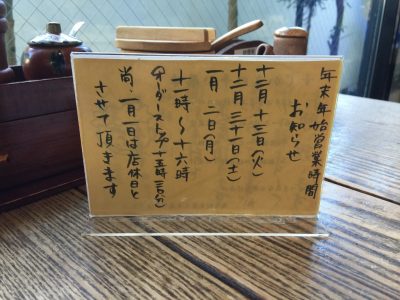 年末年始営業時間
お知らせ
十二月 十三日(火)
十二月 三十一日(土)
一月 二日(月)
十一時〜十六時
(オーダーストップ十五時三〇分)
尚、一月一日は店休日と
させて頂きます